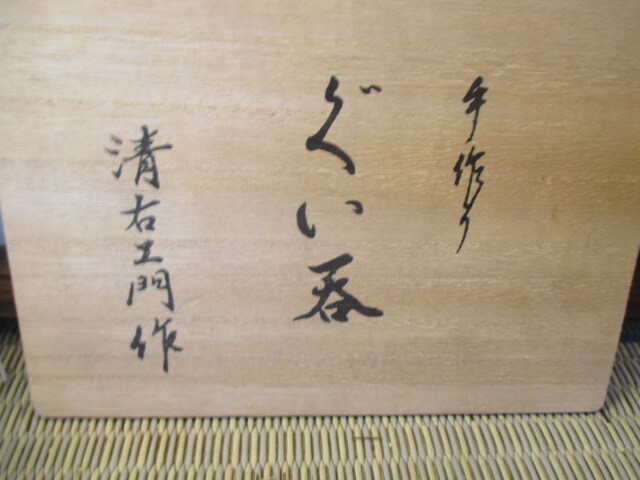 手作り
ぐい呑
清右エ門作